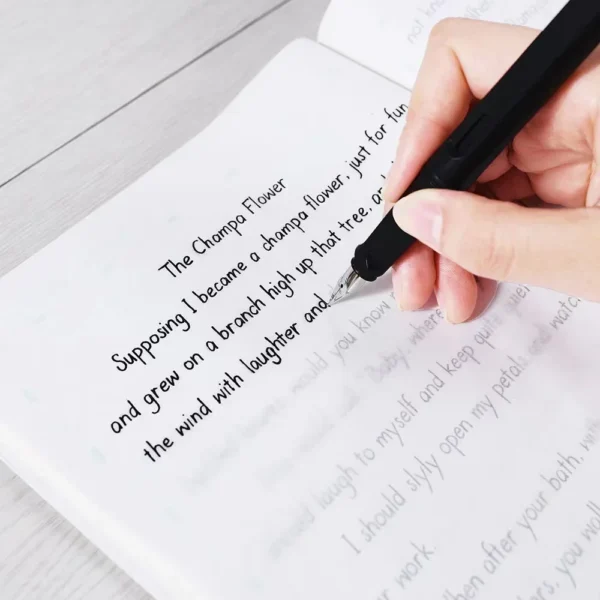 not kn
The Champa Flower
Supposing I became a champa flower, just for fun,
and grew on a branch high up that tree, an
the wind with laughter and
would you know
Baby, where
laugh to myself and keep qui
I should slyly open my petals and watch
work.
hen after your bath, wi
ers, you wal